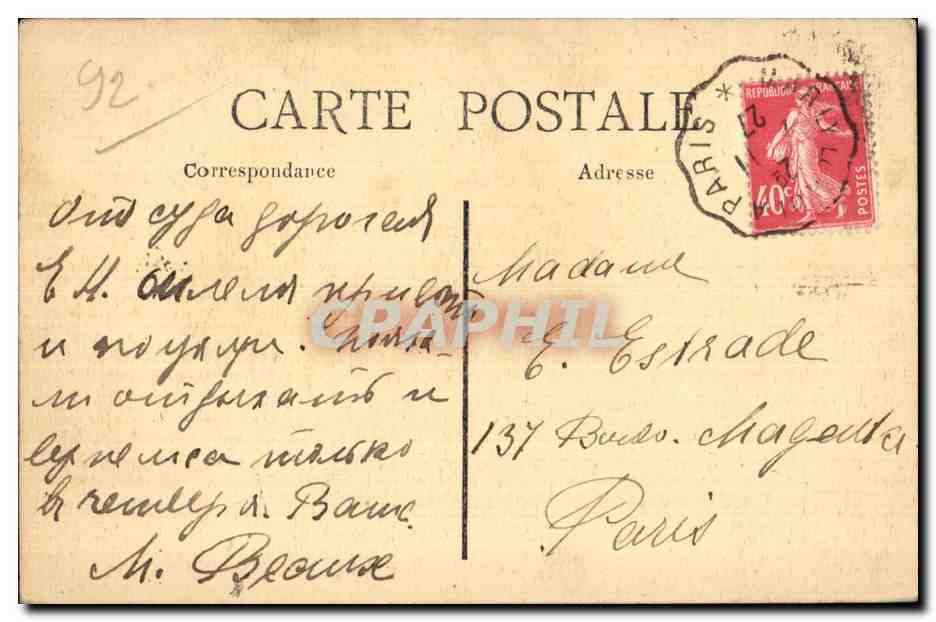 92
CARTE POSTALE
Correspondance
Adresse
PARIS *
REPUBLIQUE FRANCAISE
40c
POSTES
отсюда дорогая
Е Н. шлем привет
и поцелуи.
отдыхать и
вернемся только
в четверг. Ваш
М. Beaux
Madame
E. Estrade
137 Boulv. Magenta
Paris
CPARHIL